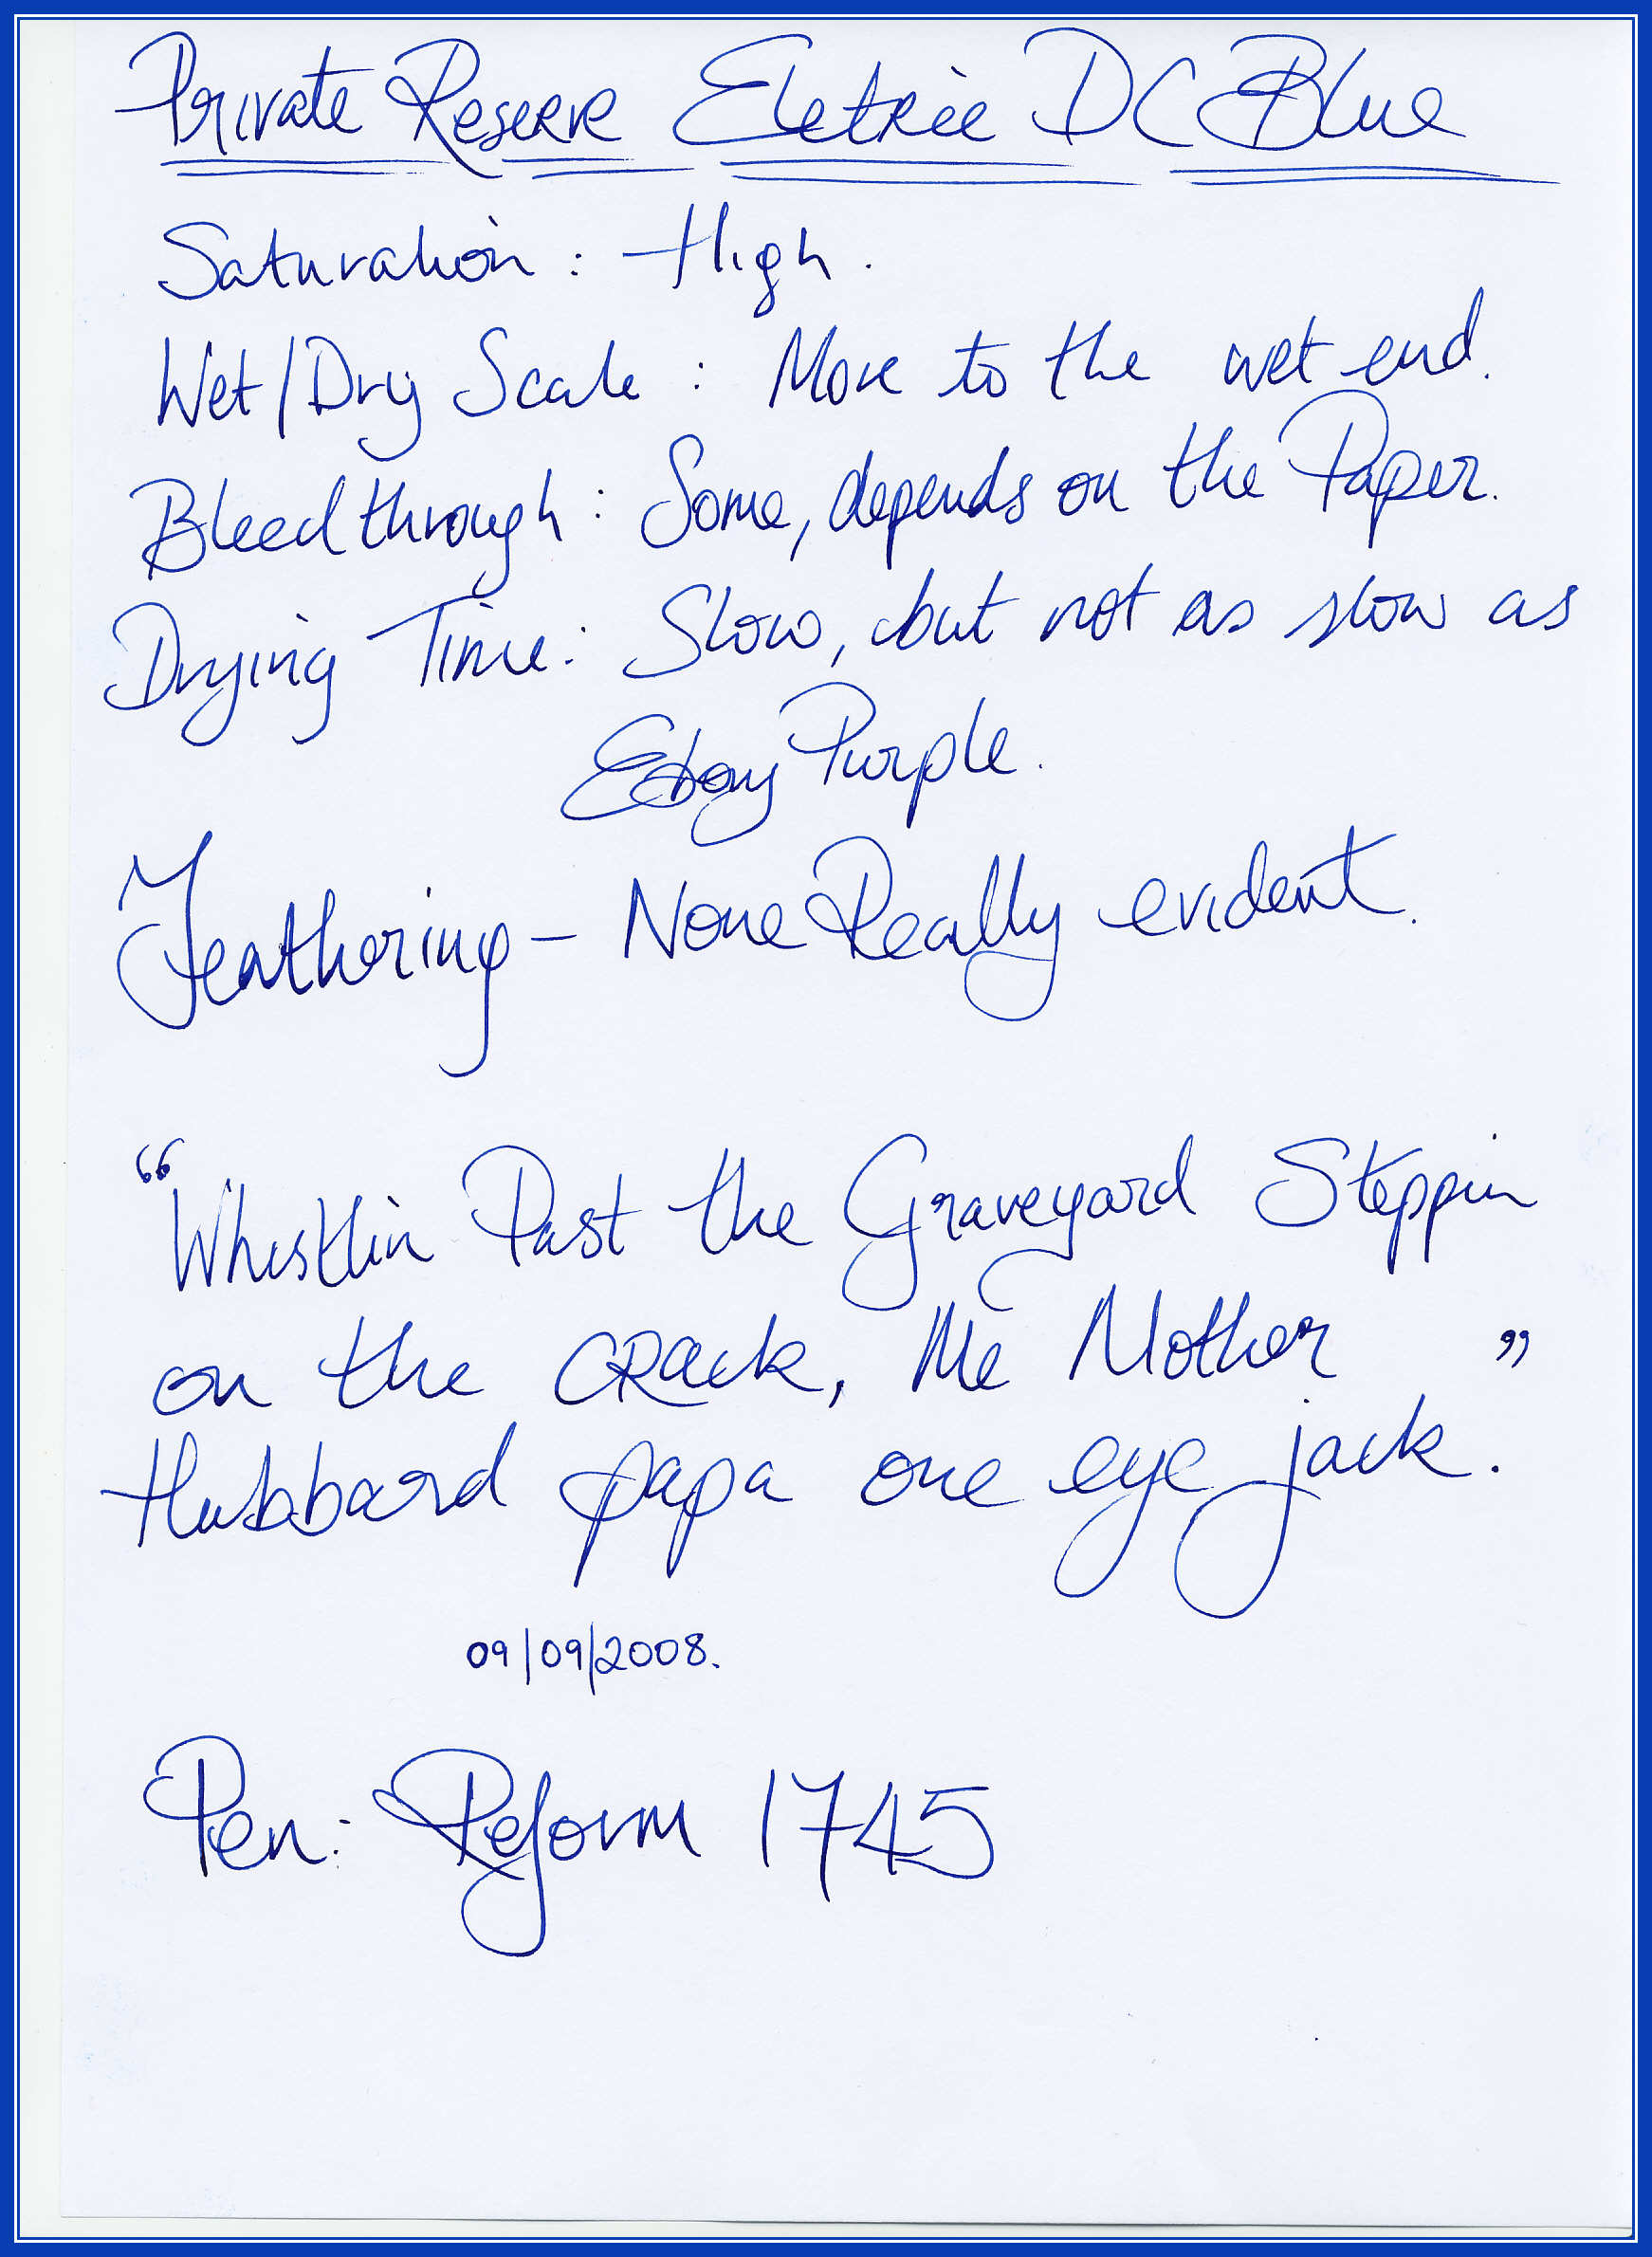 Private Reserve Eletric DC Blue
Saturation : High.
Wet/Dry Scale : More to the wet end.
Bleedthrough : Some, depends on the Paper.
Drying Time : Slow, but not as slow as
Ebony Purple.
Feathering - None Really evident.
"Whistlin Past the Graveyard Steppin
on the crack, Me Mother
Hubbard papa one eye jack."
09/09/2008.
Pen: Reform 1745